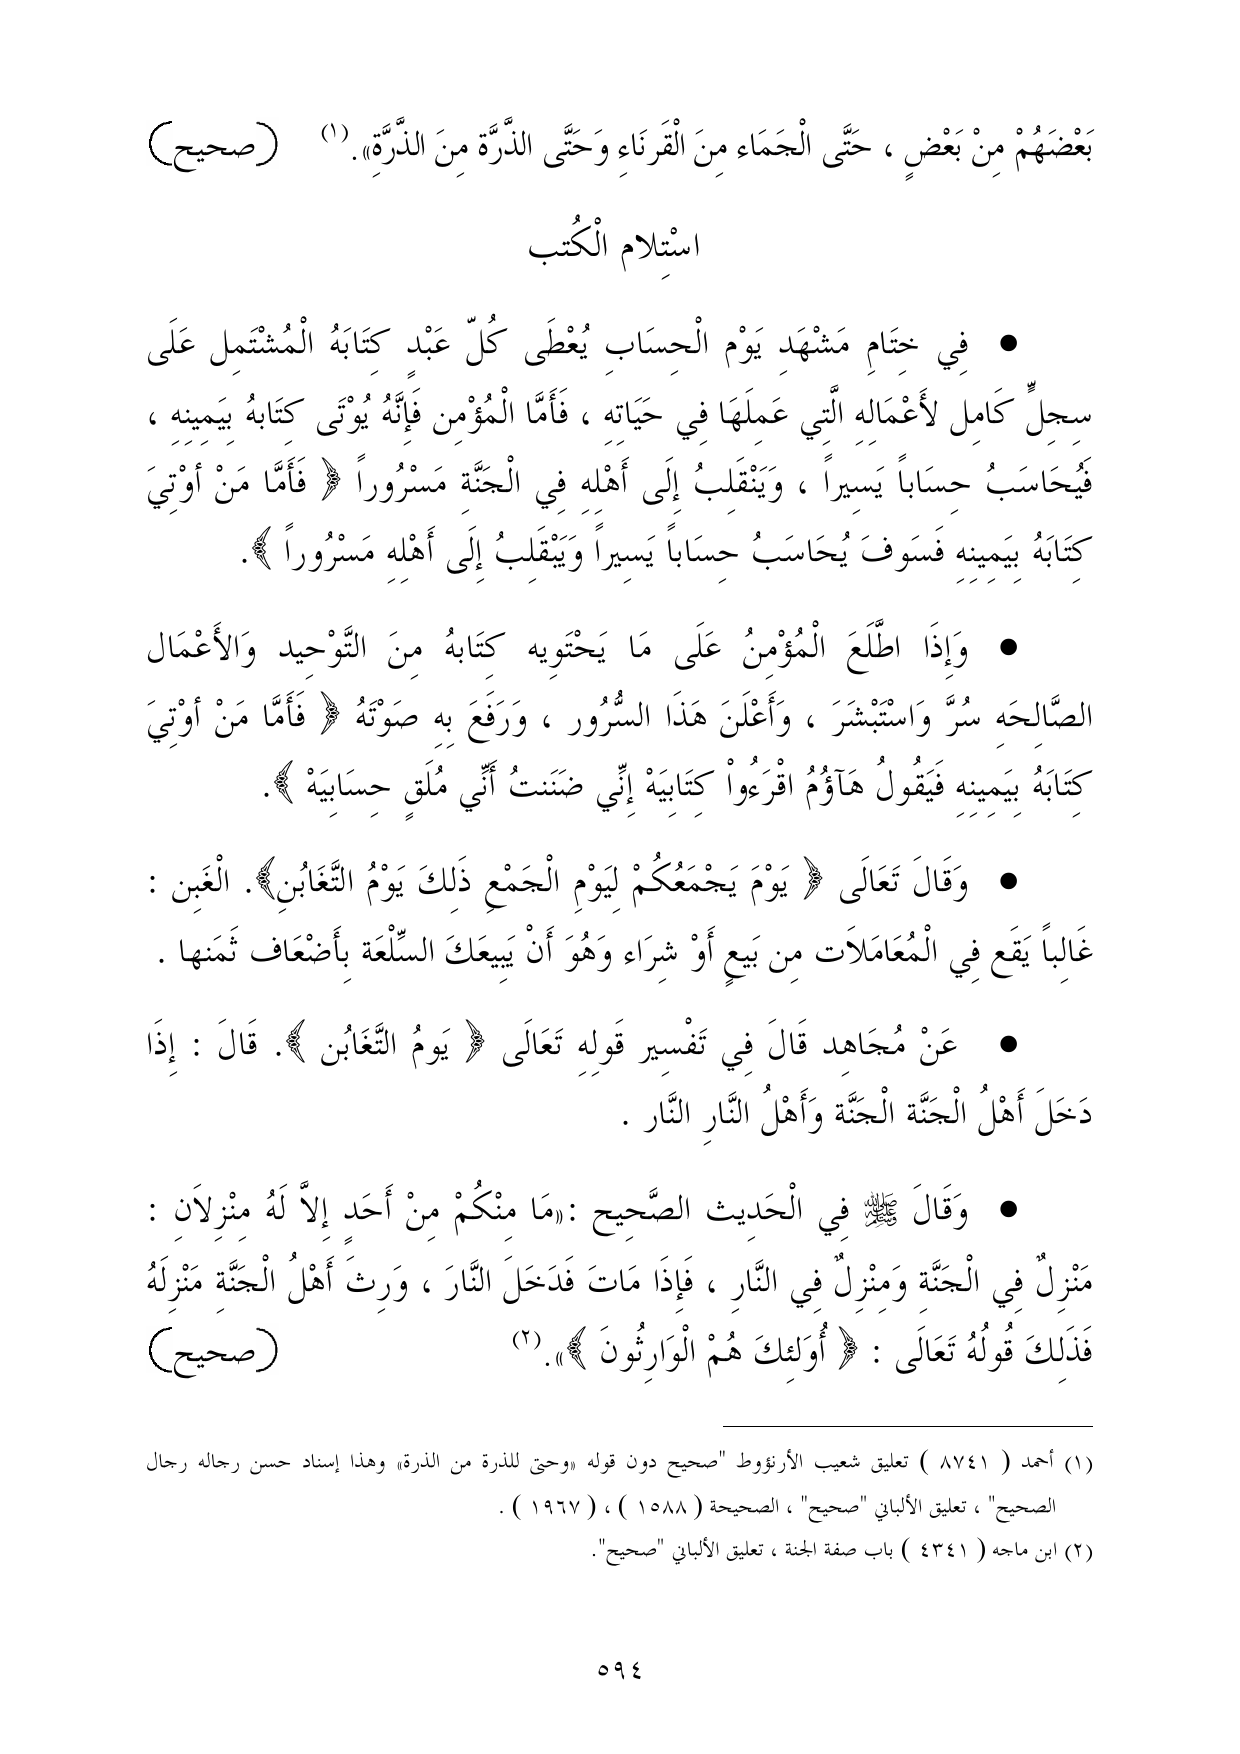 بَعْضَهُمْ مِنْ بَعْضٍ ، حَتَّى الْجَمَاء مِنَ الْقَرنَاءِ وَحَتَّى الذَّرَّة مِنَ الذَّرَّةِ». (١) (صحيح)
اسْتِلام الْكُتب
● فِي خِتَامِ مَشْهَدِ يَوْم الْحِسَابِ يُعْطَى كُلّ عَبْدٍ كِتَابَهُ الْمُشْتَمِل عَلَى
سِجِلٍّ كَامِل لأَعْمَالِهِ الَّتِي عَمِلَهَا فِي حَيَاتِهِ ، فَأَمَّا الْمُؤْمِن فَإِنَّهُ يُوْتَى كِتَابهُ بِيَمِينِهِ ،
فَيُحَاسَبُ حِسَاباً يَسِيراً ، وَيَنْقَلِبُ إِلَى أَهْلِهِ فِي الْجَنَّةِ مَسْرُوراً ﴿ فَأَمَّا مَنْ أوْتِيَ
كِتَابَهُ بِيَمِينِهِ فَسَوفَ يُحَاسَبُ حِسَاباً يَسِيراً وَيَنْقَلِبُ إِلَى أَهْلِهِ مَسْرُوراً ﴾.
● وَإِذَا اطَّلَعَ الْمُؤْمِنُ عَلَى مَا يَحْتَوِيه كِتَابهُ مِنَ التَّوْحِيد وَالأَعْمَال
الصَّالِحَهِ سُرَّ وَاسْتَبْشَرَ ، وَأَعْلَنَ هَذَا السُّرُور ، وَرَفَعَ بِهِ صَوْتَهُ ﴿ فَأَمَّا مَنْ أوْتِيَ
كِتَابَهُ بِيَمِينِهِ فَيَقُولُ هَآؤُمُ اقْرَءُواْ كِتَابِيَهْ إِنِّي ضَنَنتُ أَنِّي مُلَقٍ حِسَابِيَهْ ﴾.
● وَقَالَ تَعَالَى ﴿ يَوْمَ يَجْمَعُكُمْ لِيَوْمِ الْجَمْعِ ذَلِكَ يَوْمُ التَّغَابُنِ﴾. الْغَبِن :
غَالِباً يَقَع فِي الْمُعَامَلاَت مِن بَيعٍ أَوْ شِرَاء وَهُوَ أَنْ يَبِيعَكَ السِّلْعَة بِأَضْعَاف ثَمَنها .
● عَنْ مُجَاهِد قَالَ فِي تَفْسِير قَولِهِ تَعَالَى ﴿ يَومُ التَّغَابُن ﴾. قَالَ : إِذَا
دَخَلَ أَهْلُ الْجَنَّة الْجَنَّة وَأَهْلُ النَّارِ النَّار .
● وَقَالَ ﷺ فِي الْحَدِيث الصَّحِيح :«مَا مِنْكُمْ مِنْ أَحَدٍ إِلاَّ لَهُ مِنْزِلاَنِ :
مَنْزِلٌ فِي الْجَنَّةِ وَمِنْزِلٌ فِي النَّارِ ، فَإِذَا مَاتَ فَدَخَلَ النَّارَ ، وَرِثَ أَهْلُ الْجَنَّةِ مَنْزِلَهُ
فَذَلِكَ قُولُهُ تَعَالَى : ﴿ أُوَلئِكَ هُمْ الْوَارِثُونَ ﴾». (٢) (صحيح)
(١) أحمد ( ٨٧٤١ ) تعليق شعيب الأرنؤوط "صحيح دون قوله «وحتى للذرة من الذرة» وهذا إسناد حسن رجاله رجال
الصحيح" ، تعليق الألباني "صحيح" ، الصحيحة ( ١٥٨٨ ) ، ( ١٩٦٧ ) .
(٢) ابن ماجه ( ٤٣٤١ ) باب صفة الجنة ، تعليق الألباني "صحيح".
٥٩٤